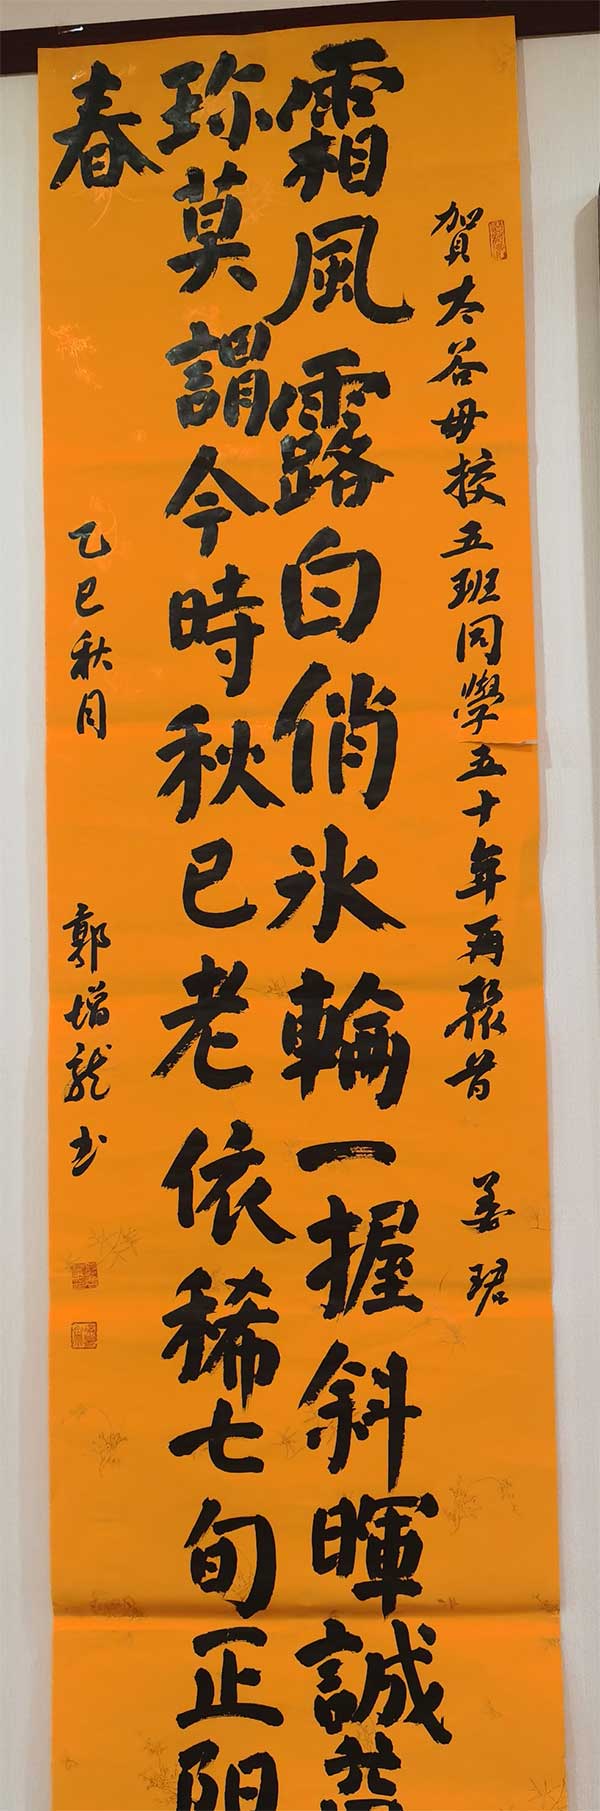 賀太谷母校五班同學五十年再聚首 姜珺
霜風露白俏冰輪一握斜暉誠
珎莫謂今時秋已老依稀七旬正阳
春
乙巳秋月 郭增龍书